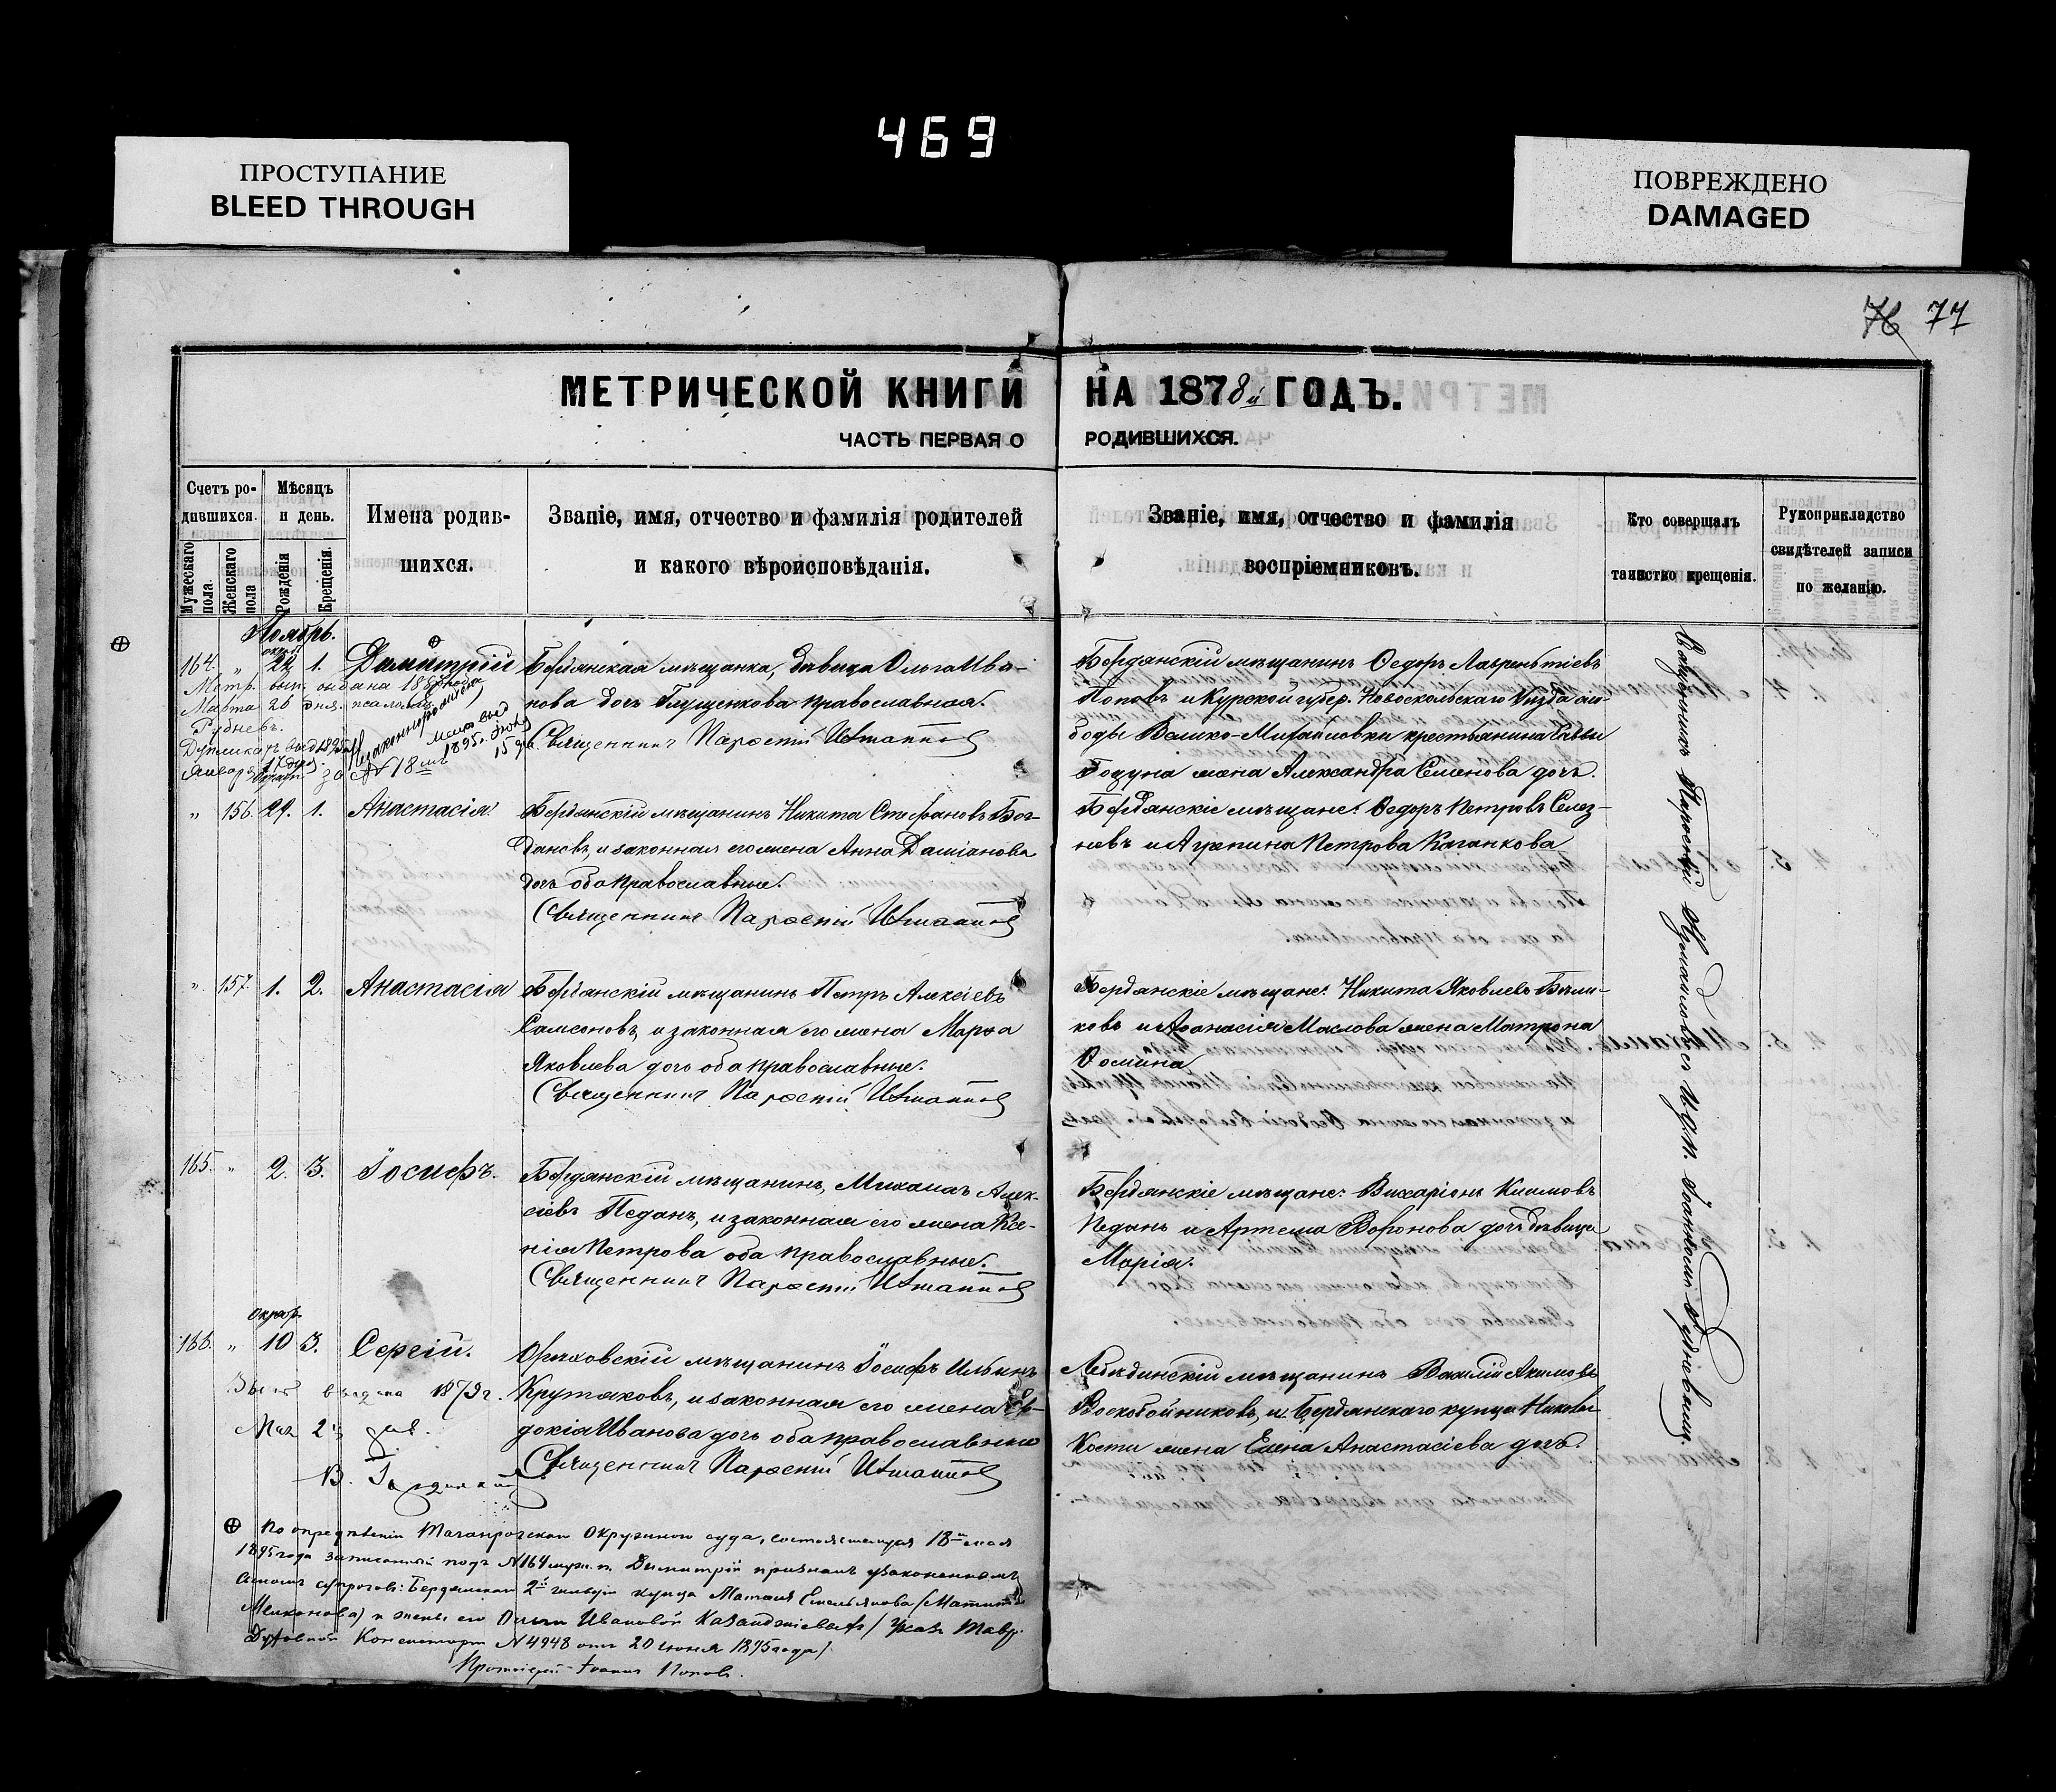 469
ПРОСТУПАНИЕ
BLEED THROUGH
ПОВРЕЖДЕНО
DAMAGED
76 77
МЕТРИЧЕСКОЙ КНИГИ НА 1878й ГОДЪ.
ЧАСТЬ ПЕРВАЯ О РОДИВШИХСЯ.
Счетъ ро-
дившихся.
Мужескаго пола.
Женскаго пола
Мѣсяцъ
и день.
Рожденія
Крещенія.
Имена родив-
шихся.
Званіе, имя, отчество и фамилія родителей
и какого вѣроисповѣданія.
Званіе, имя, отчество и фамилія
воспріемниковъ.
Кто совершалъ
таинство крещенія.
Рукоприкладство
свидѣтелей записи
по желанію.
Ноябрь.
164. " 22 1. Димитрій
Бердянская мѣщанка, дѣвица Ольга Ива-
нова дочь Глущенкова православная.
Священникъ
Незаконнорожденн
Марта 26 дня.
Бердянскій мѣщанинъ Ѳедоръ Лаврентіевъ
Поповъ и Курской губер. Новоскольскаго Уѣзда сло-
боды Велико-Михайловки крестьянина Саввы
Годуна жена Александра Семенова дочь.
" 156. 29. 1. Анастасія.
Бердянскій мѣщанинъ Никита Стефановъ Бог-
дановъ, и законная его жена Анна Даміанова
дочь оба православные.
Священникъ
Бердянскіе мѣщане: Ѳедоръ Петровъ Селез-
невъ и Агрепина Петрова Каганкова
" 157. 1. 2. Анастасія
Бердянскій мѣщанинъ Петръ Алексіевъ
Самсоновъ, и законная его жена Марѳа
Яковлева дочь оба православные.
Священникъ
Бердянскіе мѣщане: Никита Яковлевъ Бѣли-
ковъ и Аѳанасія Маслова жена Матрона
Ѳомина
165. " 2. 3. Іосифъ.
Бердянскій мѣщанинъ, Михаилъ Алек-
сіевъ Педанъ, и законная его жена Ксе-
нія Петрова оба православные.
Священникъ
Бердянскіе мѣщане: Виссаріонъ Климовъ
Педанъ и Артема Воронова дочь дѣвица
Марія.
Октяб.
166. " 10 3. Сергій.
Орѣховскій мѣщанинъ Іосифъ Ильинъ
Крутяковъ, и законная его жена Ев-
докія Иванова дочь оба православные
Священникъ
Лебединскій мѣщанинъ Василій Акимовъ
Воскобойниковъ, и Бердянскаго купца Николая
Кости жена Елена Анастасіева дочь.
выдана 1879 г.
Мая 23 дня.
По опредѣленію Таганрогскаго Окружного суда, состоявшемуся 18го мая
1895 года записанный подъ №164 муж. п. Димитрій признанъ узаконеннымъ
сыномъ супруговъ: Бердянскаго 2й гильдіи купца Матвѣя Емельянова
и жены его Ольги Ивановой / Указъ Тавр.
Духовной Консисторіи №4948 отъ 20 іюня 1895 года/
Протоіерей Іоаннъ Поповъ.